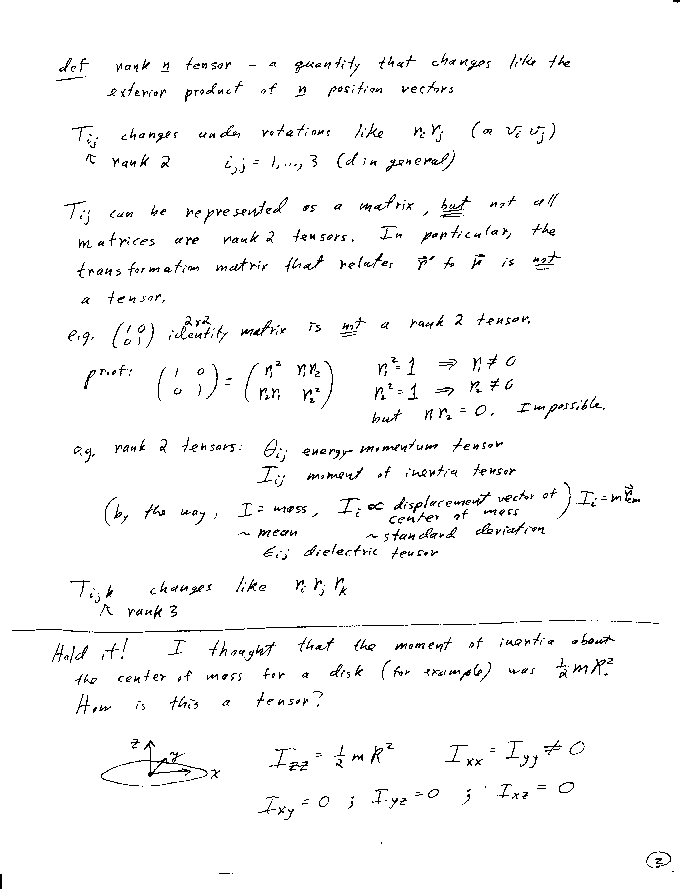 def rank n tensor - a quantity that changes like the
exterior product of n position vectors
Tij changes under rotations like rirj (or vivj)
↖ rank 2 i,j = 1,..., 3 (d in general)
Tij can be represented as a matrix, but not all
matrices are rank 2 tensors. In particular, the
transformation matrix that relates r⃗' to r⃗ is not
a tensor.
e.g. (1 0 / 0 1) 2x2 identity matrix is not a rank 2 tensor.
proof: (1 0 / 0 1) = (r₁² r₁r₂ / r₂r₁ r₂²) r₁² = 1 ⇒ r₁ ≠ 0
r₂² = 1 ⇒ r₂ ≠ 0
but r₁r₂ = 0. Impossible.
e.g. rank 2 tensors: Θij energy momentum tensor
Iij moment of inertia tensor
(by the way, I = mass, Ii ∝ displacement vector of center of mass) Ii = m r⃗cm
~ mean ~ standard deviation
εij dielectric tensor
Tijk changes like ri rj rk
↖ rank 3
Hold it! I thought that the moment of inertia about
the center of mass for a disk (for example) was ½mR².
How is this a tensor?
z y x
Izz = ½ m R² Ixx = Iyy ≠ 0
Ixy = 0 ; Iyz = 0 ; Ixz = 0
2